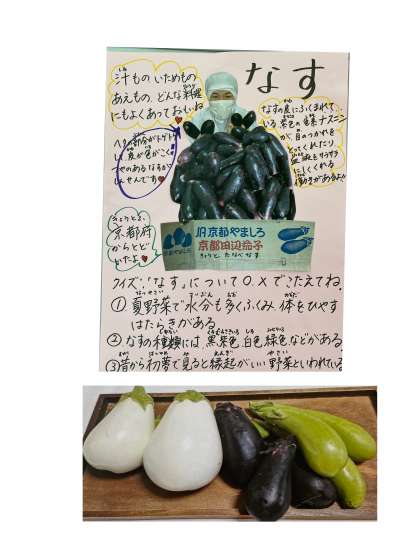 なす
汁もの いためもの
あえもの、どんな料理
にもよくあって
なすの皮にふくまれて
いる紫色の色素ナスニン
が、目のつかれを
とってくれたり
血液をサラサラ
にしてくれる
働きがあるよ
の部分がトゲトゲ
して皮が色がこく
つやのあるなすが
んせんです
京都府
からとど
いたよ
JA京都やましろ
京都田辺茄子
きょうと たなべ なす
クイズ、「なす」について○、×でこたえてね。
①夏野菜で水分も多くふくみ、体をひやす
はたらきがある
②なすの種類には、黒紫色、白色、緑色などがある
③昔から初夢で見ると縁起がいい野菜といわれている